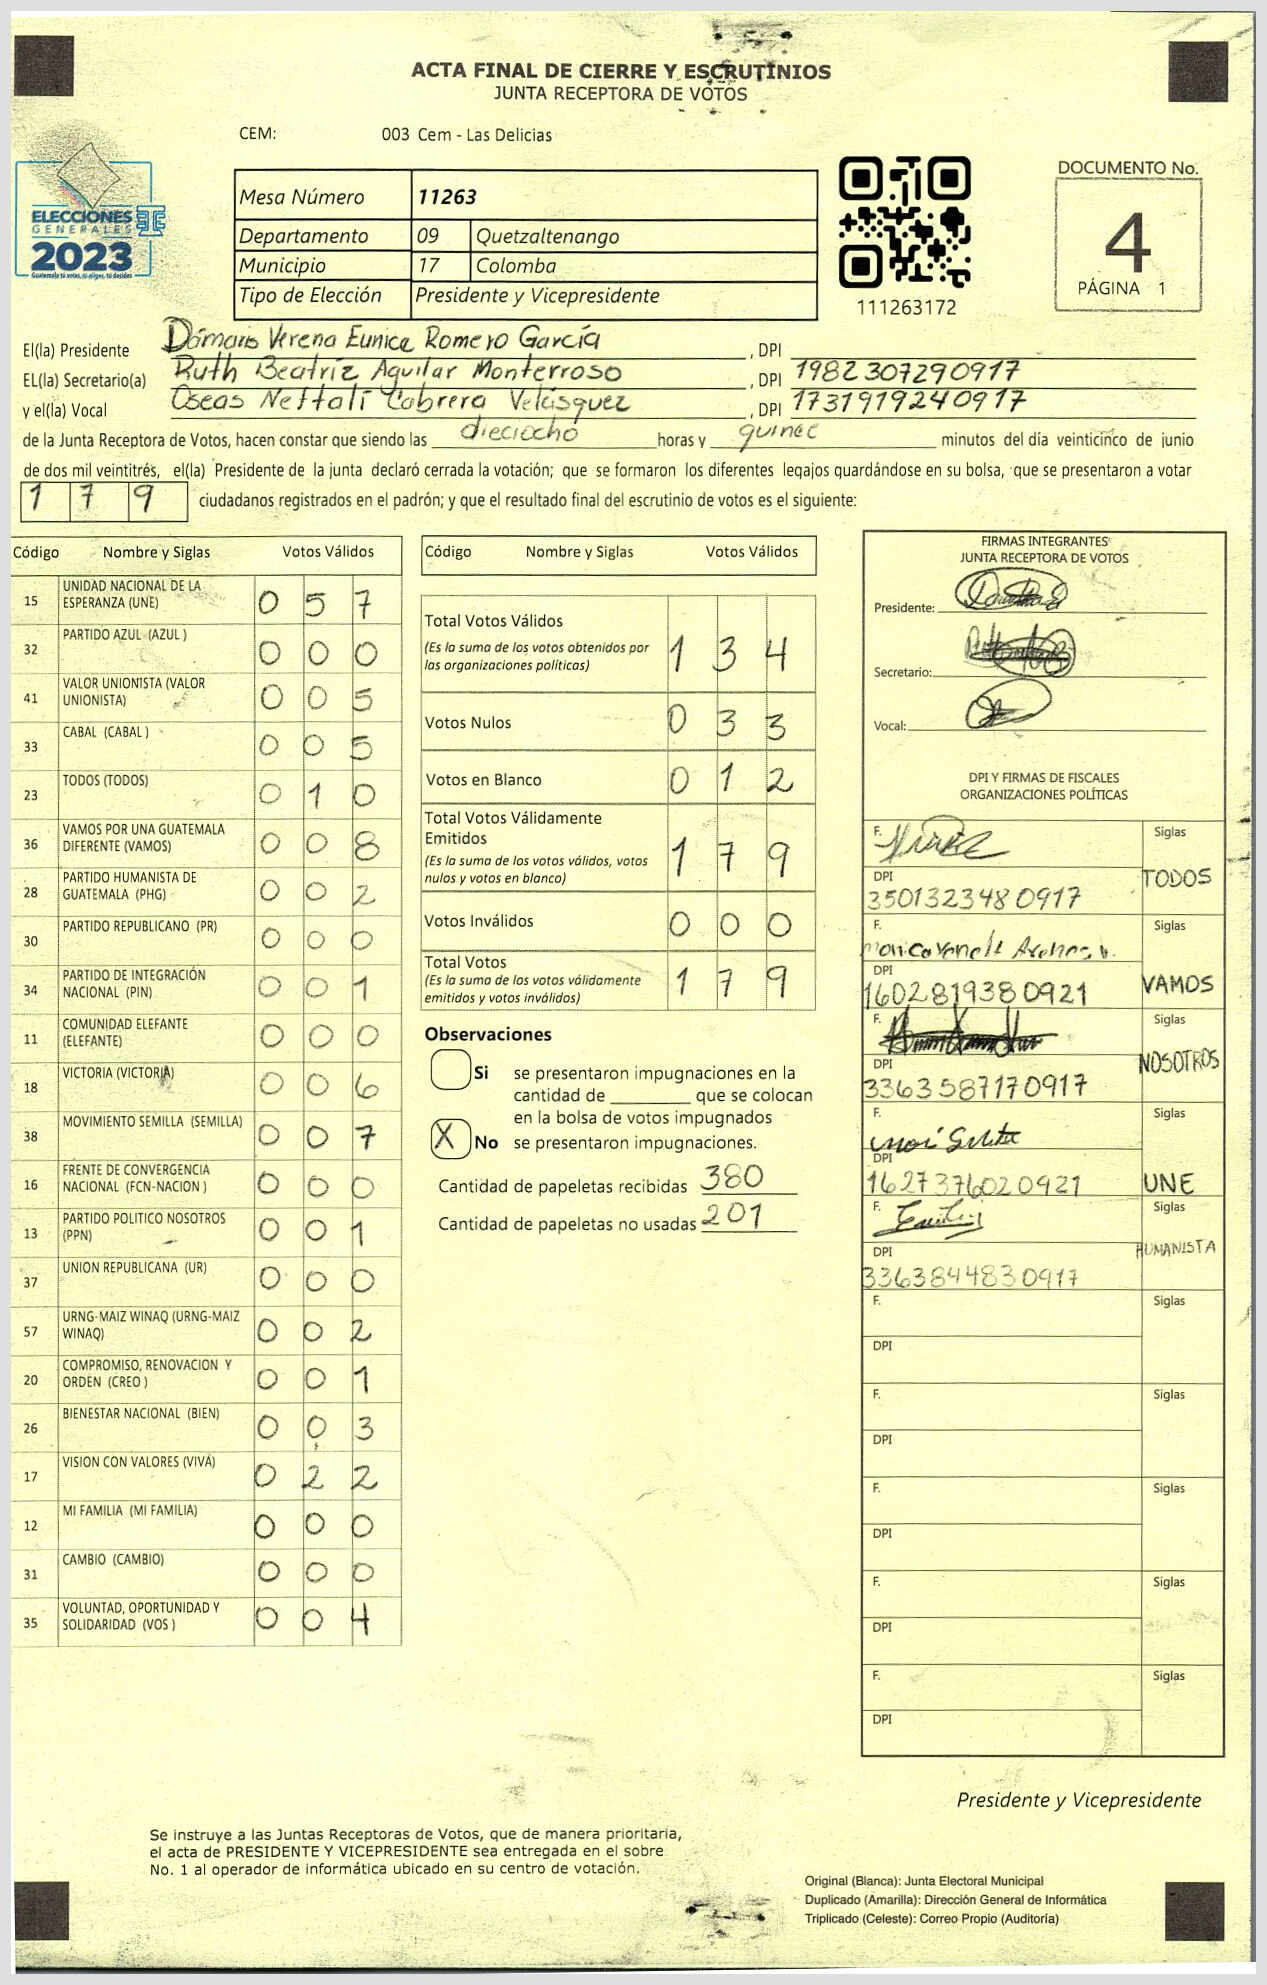 ACTA FINAL DE CIERRE Y ESCRUTINIOS
JUNTA RECEPTORA DE VOTOS
CEM: 003 Cem - Las Delicias
ELECCIONES
GENERALES
2023
Guatemala tú votas, tú eliges, tú decides
Mesa Número 11263
Departamento 09 Quetzaltenango
Municipio 17 Colomba
Tipo de Elección Presidente y Vicepresidente
111263172
DOCUMENTO No.
4
PÁGINA 1
El(la) Presidente Dámaris Verena Eunice Romero García , DPI
EL(la) Secretario(a) Ruth Beatríz Aguilar Monterroso , DPI 1982307290917
y el(la) Vocal Oseas Neftalí Cabrera Velásquez , DPI 1731919240917
de la Junta Receptora de Votos, hacen constar que siendo las dieciocho horas y quince minutos del día veinticinco de junio
de dos mil veintitrés, el(la) Presidente de la junta declaró cerrada la votación; que se formaron los diferentes legajos quardándose en su bolsa, que se presentaron a votar
1 7 9 ciudadanos registrados en el padrón; y que el resultado final del escrutinio de votos es el siguiente:
Código Nombre y Siglas Votos Válidos
15 UNIDAD NACIONAL DE LA ESPERANZA (UNE) 0 5 7
32 PARTIDO AZUL (AZUL ) 0 0 0
41 VALOR UNIONISTA (VALOR UNIONISTA) 0 0 5
33 CABAL (CABAL ) 0 0 5
23 TODOS (TODOS) 0 1 0
36 VAMOS POR UNA GUATEMALA DIFERENTE (VAMOS) 0 0 8
28 PARTIDO HUMANISTA DE GUATEMALA (PHG) 0 0 2
30 PARTIDO REPUBLICANO (PR) 0 0 0
34 PARTIDO DE INTEGRACIÓN NACIONAL (PIN) 0 0 1
11 COMUNIDAD ELEFANTE (ELEFANTE) 0 0 0
18 VICTORIA (VICTORIA) 0 0 6
38 MOVIMIENTO SEMILLA (SEMILLA) 0 0 7
16 FRENTE DE CONVERGENCIA NACIONAL (FCN-NACION ) 0 0 0
13 PARTIDO POLITICO NOSOTROS (PPN) 0 0 1
37 UNION REPUBLICANA (UR) 0 0 0
57 URNG-MAIZ WINAQ (URNG-MAIZ WINAQ) 0 0 2
20 COMPROMISO, RENOVACION Y ORDEN (CREO ) 0 0 1
26 BIENESTAR NACIONAL (BIEN) 0 0 3
17 VISION CON VALORES (VIVA) 0 2 2
12 MI FAMILIA (MI FAMILIA) 0 0 0
31 CAMBIO (CAMBIO) 0 0 0
35 VOLUNTAD, OPORTUNIDAD Y SOLIDARIDAD (VOS ) 0 0 4
Código Nombre y Siglas Votos Válidos
Total Votos Válidos 1 3 4
(Es la suma de los votos obtenidos por
las organizaciones políticas)
Votos Nulos 0 3 3
Votos en Blanco 0 1 2
Total Votos Válidamente
Emitidos 1 7 9
(Es la suma de los votos válidos, votos
nulos y votos en blanco)
Votos Inválidos 0 0 0
Total Votos 1 7 9
(Es la suma de los votos válidamente
emitidos y votos inválidos)
Observaciones
Si se presentaron impugnaciones en la
cantidad de ________ que se colocan
en la bolsa de votos impugnados
X No se presentaron impugnaciones.
Cantidad de papeletas recibidas 380
Cantidad de papeletas no usadas 201
FIRMAS INTEGRANTES
JUNTA RECEPTORA DE VOTOS
Presidente:
Secretario:
Vocal:
DPI Y FIRMAS DE FISCALES
ORGANIZACIONES POLÍTICAS
F. Siglas
DPI TODOS
3501323480917
F. Siglas
DPI VAMOS
1602819380921
F. Siglas
DPI NOSOTROS
3363587170917
F. Siglas
DPI UNE
1627376020921
F. Siglas
DPI HUMANISTA
3363844830917
F. Siglas
DPI
F. Siglas
DPI
F. Siglas
DPI
F. Siglas
DPI
F. Siglas
DPI
Presidente y Vicepresidente
Se instruye a las Juntas Receptoras de Votos, que de manera prioritaria,
el acta de PRESIDENTE Y VICEPRESIDENTE sea entregada en el sobre
No. 1 al operador de informática ubicado en su centro de votación.
Original (Blanca): Junta Electoral Municipal
Duplicado (Amarilla): Dirección General de Informática
Triplicado (Celeste): Correo Propio (Auditoría)